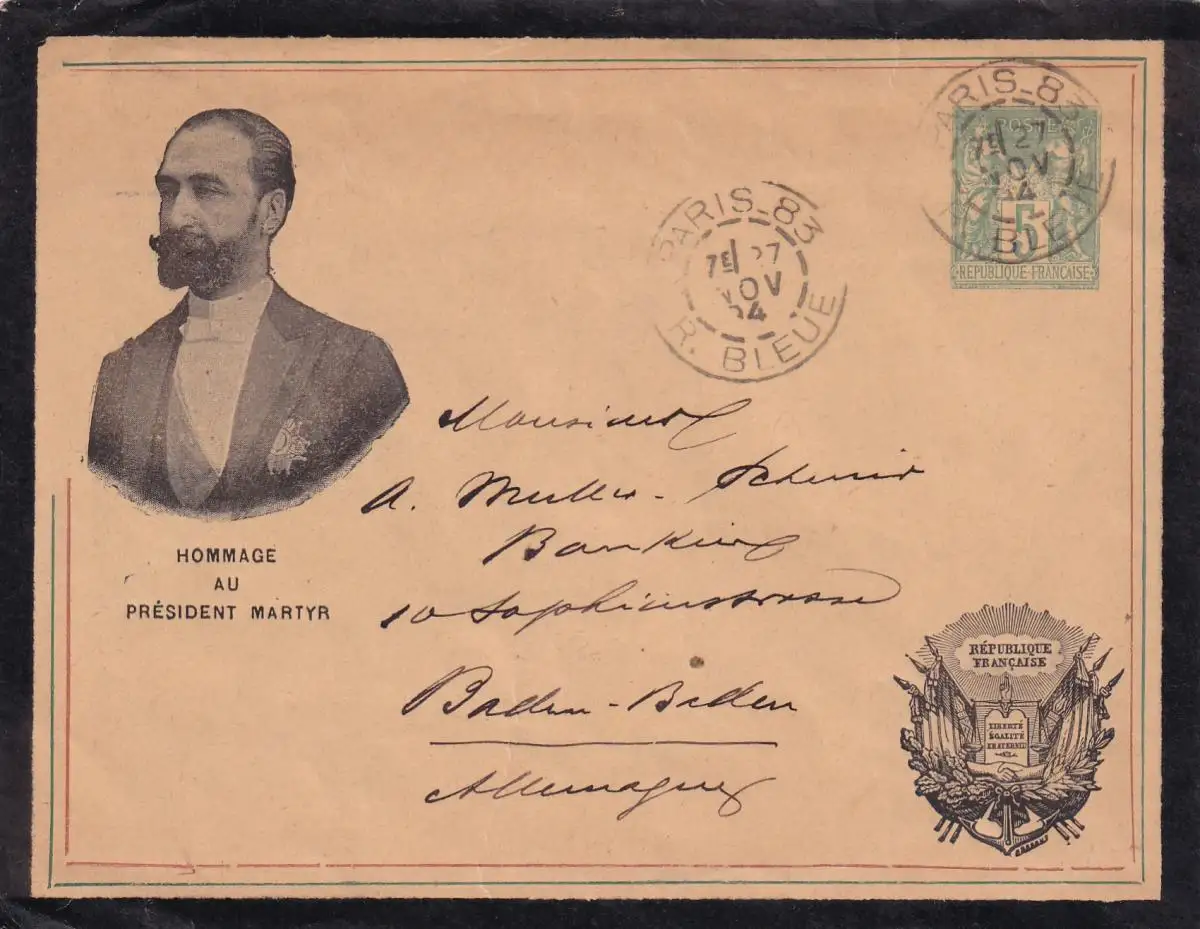 PARIS-83
7E 27
NOV
94
R. BLEUE
POSTE
5
RÉPUBLIQUE FRANÇAISE
PARIS-83
7E 27
NOV
94
R. BLEUE
HOMMAGE
AU
PRÉSIDENT MARTYR
Monsieur
A. Muller-
Bankier
10 Sophienstrasse
Baden-Baden
Allemagne
RÉPUBLIQUE
FRANÇAISE
LIBERTÉ
ÉGALITÉ
FRATERNITÉ